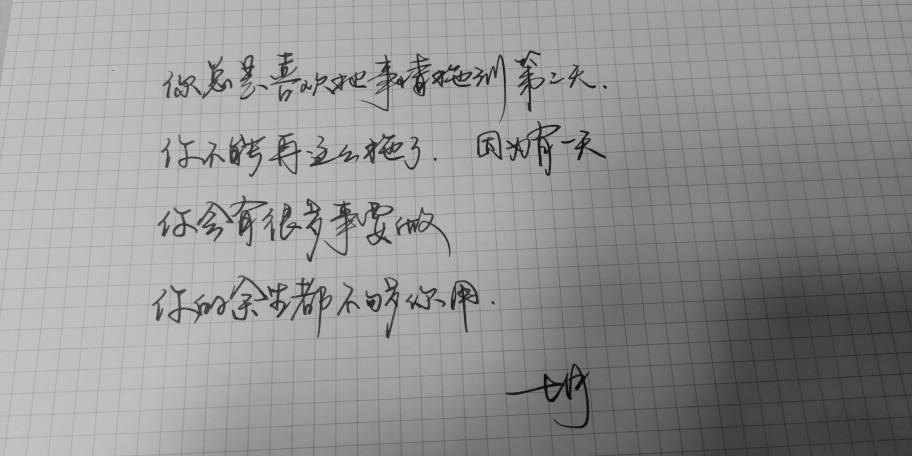 你总是喜欢把事情拖到第二天.
你不能再这么拖了. 因为有一天
你会有很多事要做
你的余生都不够你用.